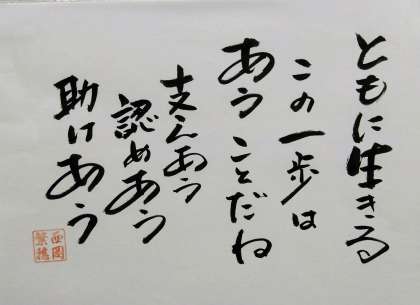 ともに生きる
この一歩は
あうことだね
支えあう
認めあう
助けあう